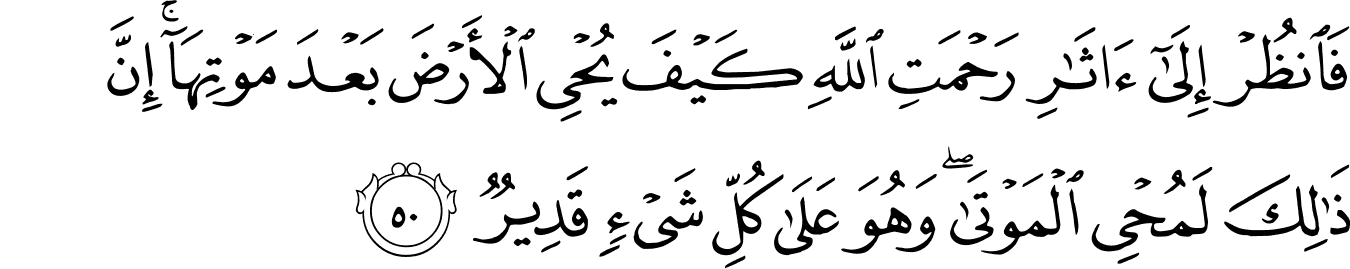 فَٱنظُرْ إِلَىٰٓ ءَاثَٰرِ رَحْمَتِ ٱللَّهِ كَيْفَ يُحْىِ ٱلْأَرْضَ بَعْدَ مَوْتِهَآ ۚ إِنَّ
ذَٰلِكَ لَمُحْىِ ٱلْمَوْتَىٰ ۖ وَهُوَ عَلَىٰ كُلِّ شَىْءٍ قَدِيرٌ ٥٠